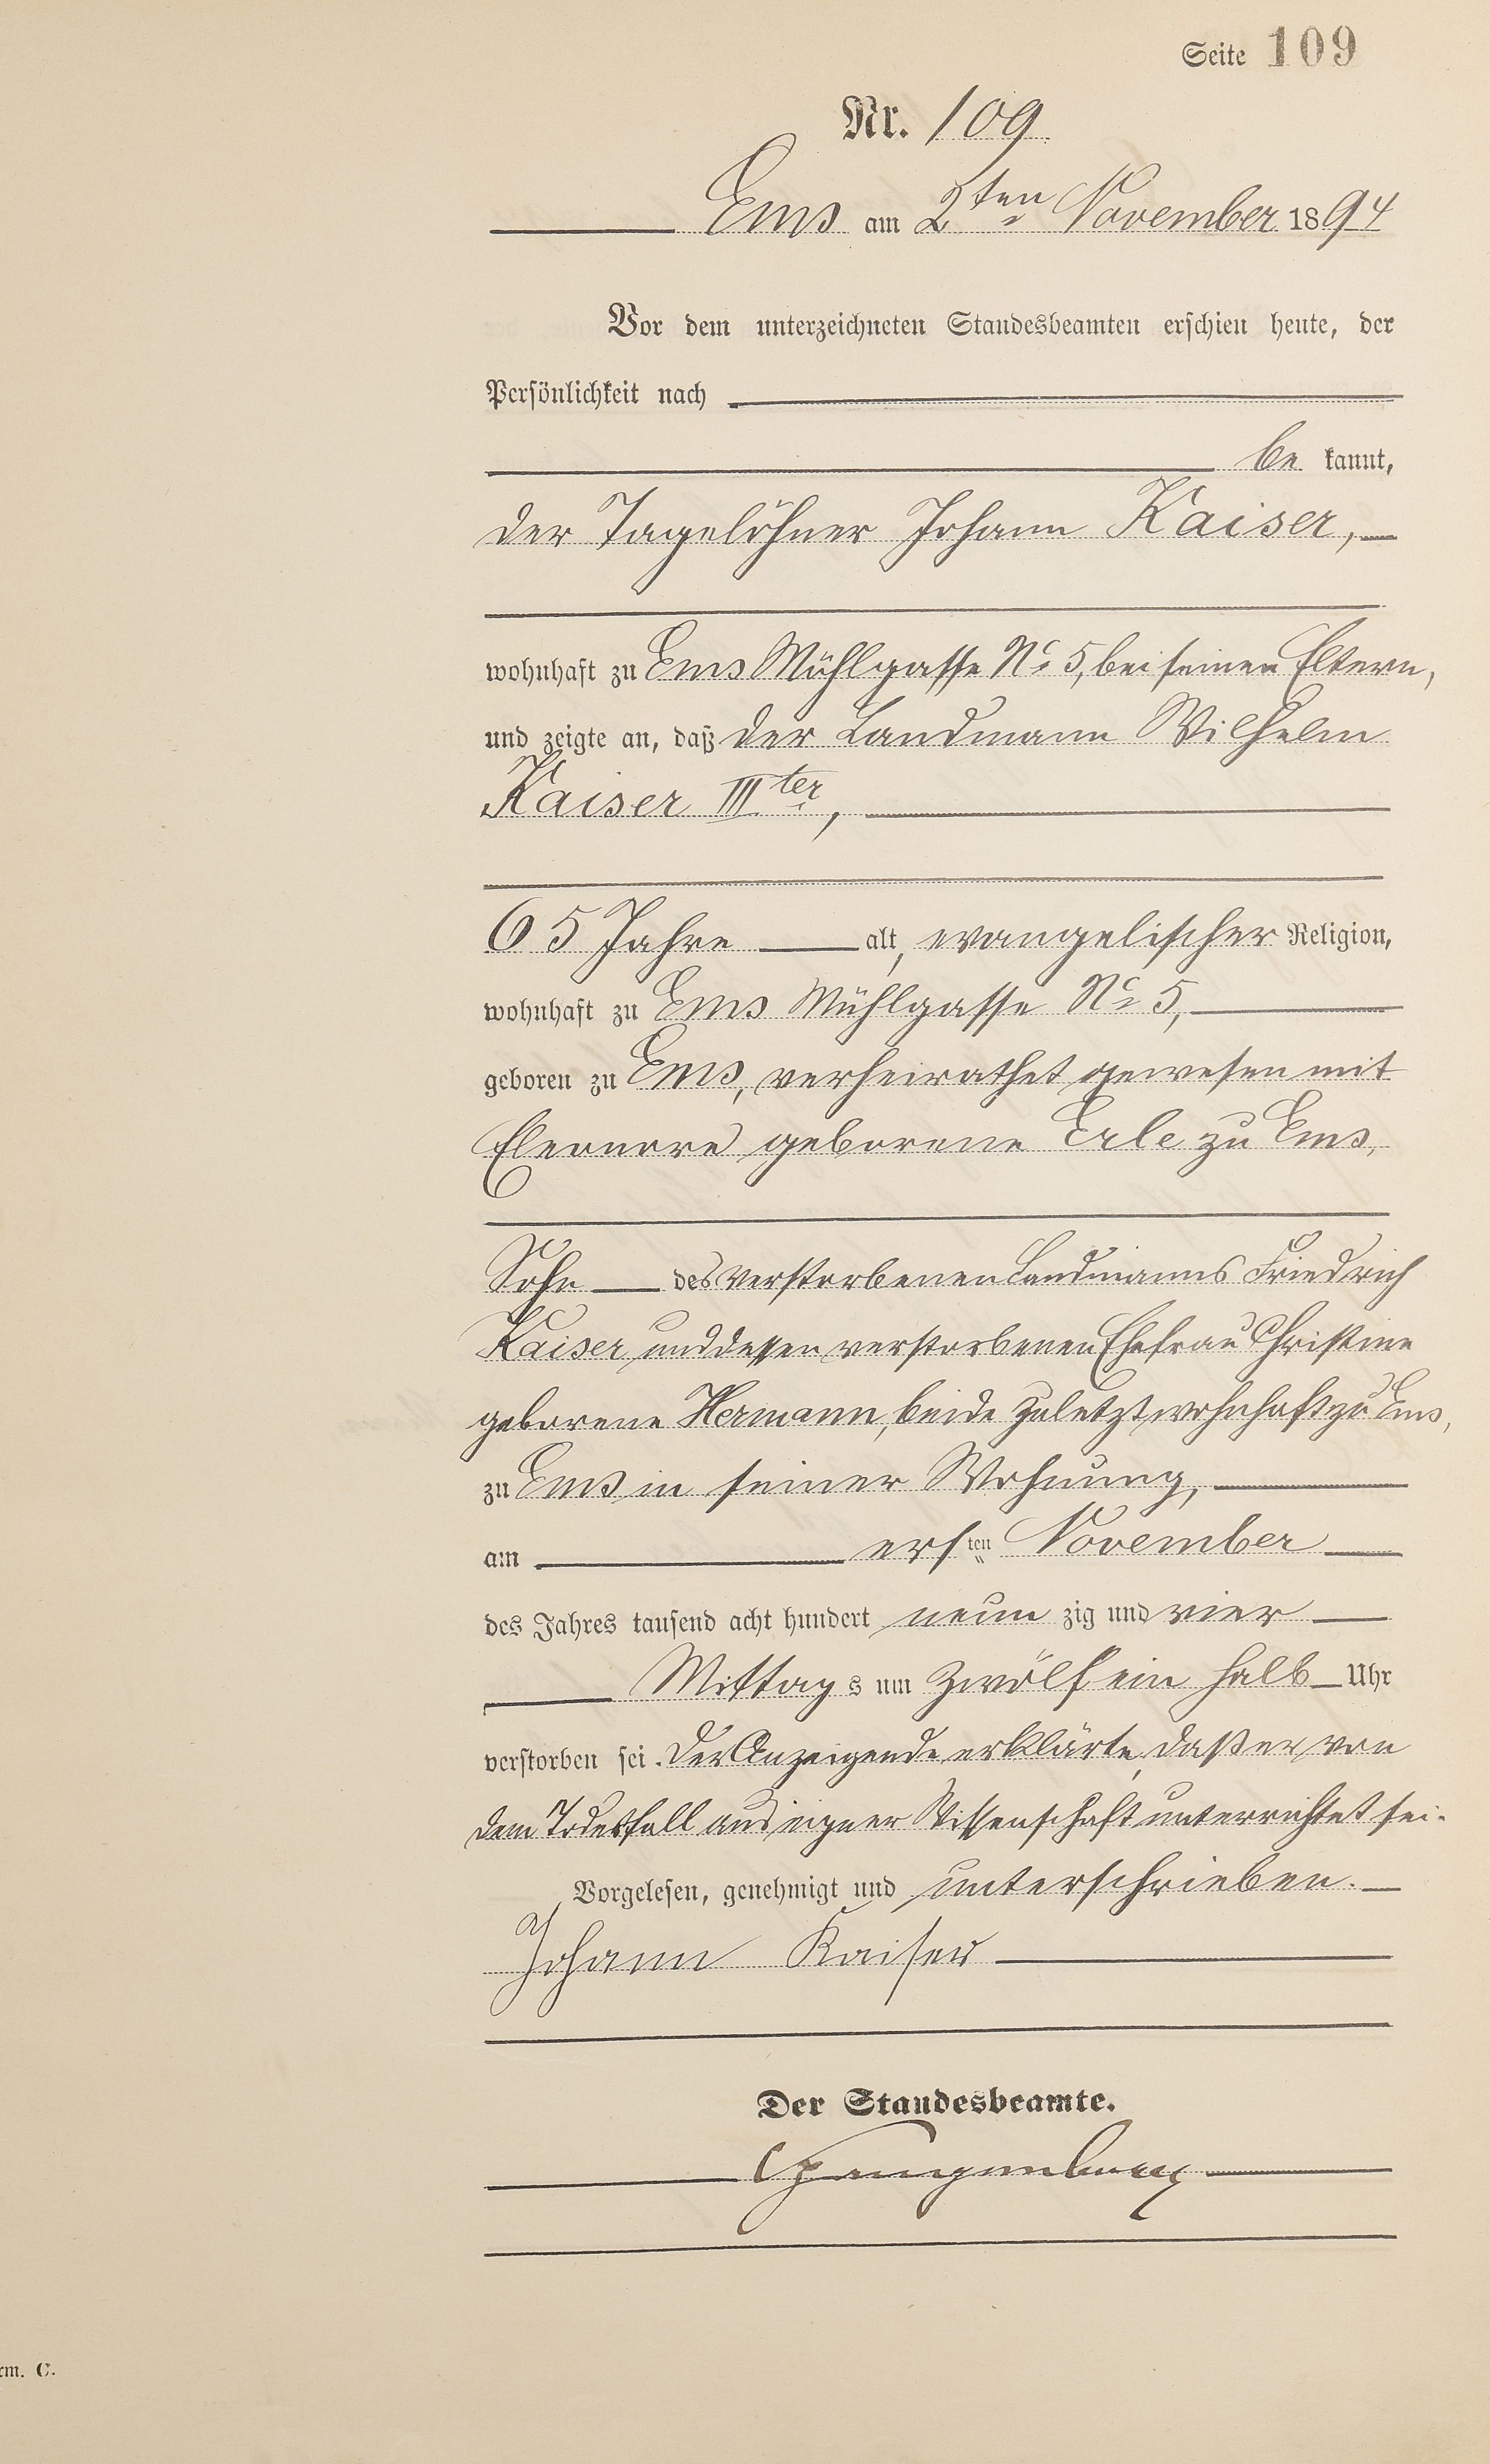 Seite 109
Nr. 109
Ems am 2ten November 1894
Vor dem unterzeichneten Standesbeamten erschien heute, der
Persönlichkeit nach
be kannt,
der Tagelöhner Johann Kaiser,
wohnhaft zu Ems Mühlgasse No 5, bei seinen Eltern,
und zeigte an, daß der Landmann Wilhelm
Kaiser IIIter,
65 Jahre alt, evangelischer Religion,
wohnhaft zu Ems Mühlgasse No 5,
geboren zu Ems, verheirathet gewesen mit
Eleonore geborene Erle zu Ems,
Sohn des verstorbenen Landmanns Friedrich
Kaiser und dessen verstorbenen Ehefrau Christine
geborene Hermann, beide zuletzt wohnhaft zu Ems,
zu Ems in seiner Wohnung,
am ersten November
des Jahres tausend acht hundert neun zig und vier
Mittags um zwölf ein halb Uhr
verstorben sei. Der Anzeigende erklärte, daß er von
dem Todesfall aus eigner Wissenschaft unterrichtet sei.
Vorgelesen, genehmigt und unterschrieben.
Johann Kaiser
Der Standesbeamte.
rm. C.